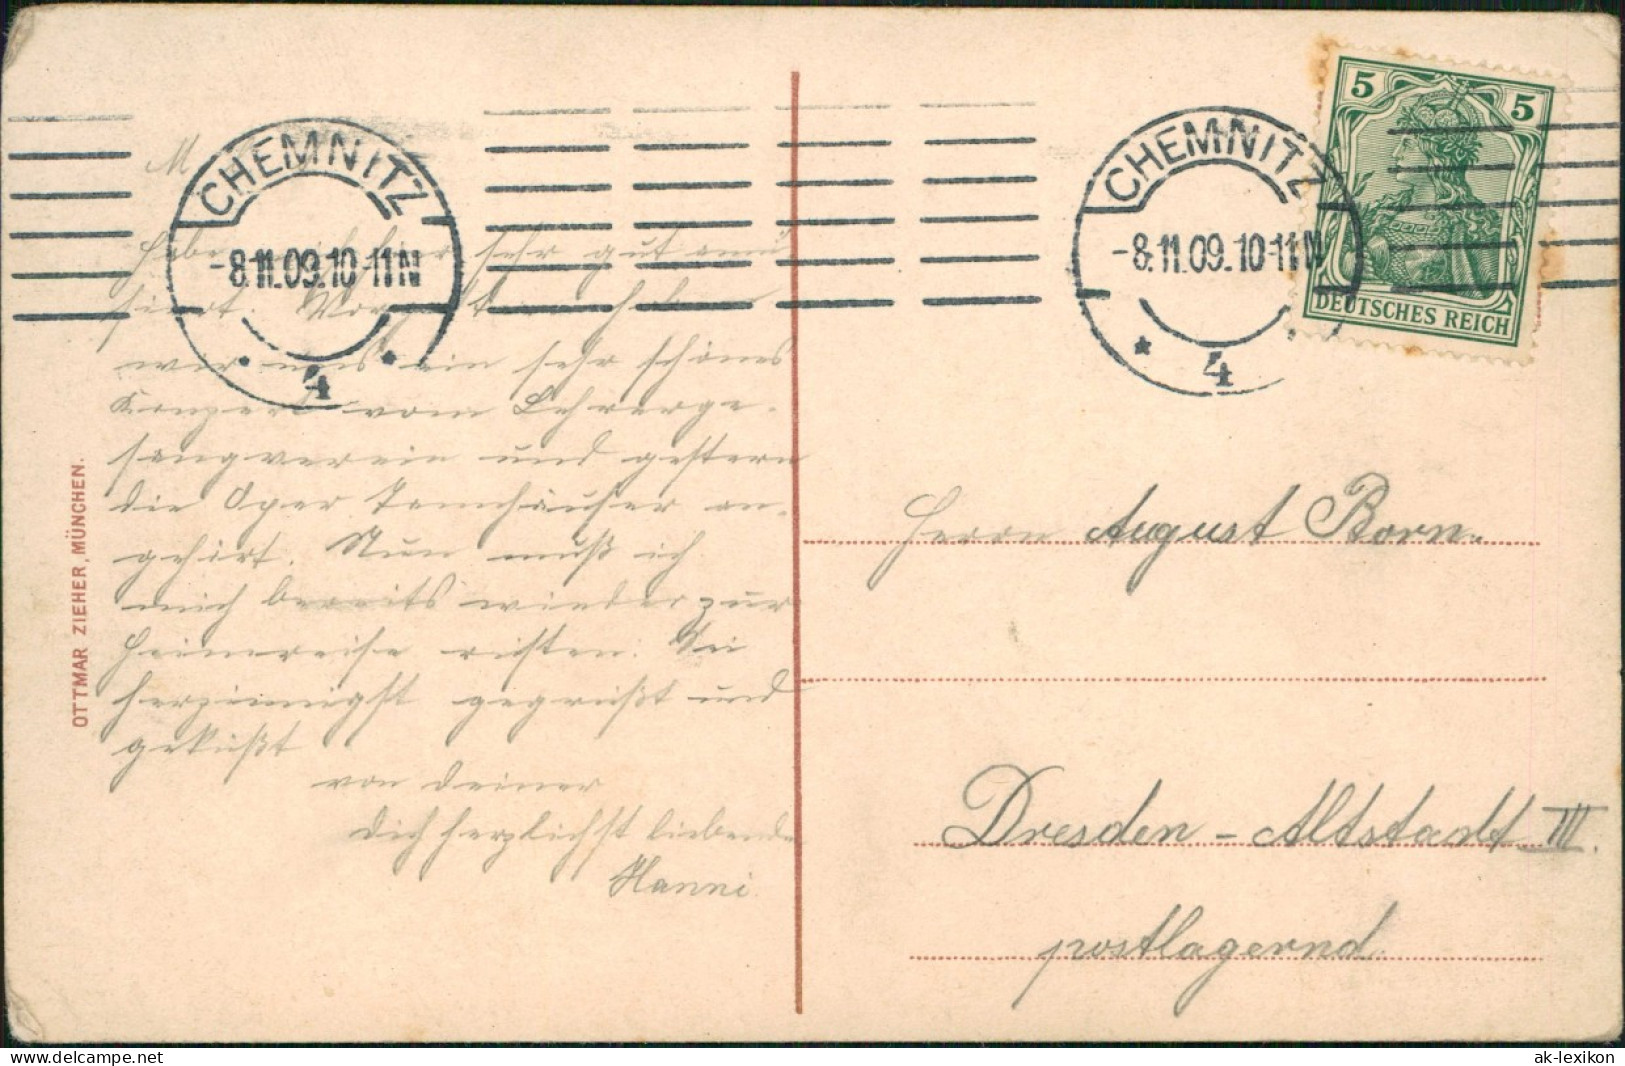 CHEMNITZ
-8.11.09.10-11N
* 4 *
CHEMNITZ
-8.11.09.10-11N
* 4
5 5
DEUTSCHES REICH
M
habe hier sehr gut amü
siert.
wir uns ein sehr schönes
Konzert vom Lehrerge-
sangverein und gestern
die Oper Tannhäuser an-
gehört. Nun muß ich
mich bereits wieder zur
Heimreise rüsten. Sei
herzinnigst gegrüßt und
geküßt
von Deiner
Dich herzlichst liebende
Hanni.
OTTMAR ZIEHER, MÜNCHEN.
Herrn August Born.
Dresden - Altstadt III.
postlagernd.
delcampe.net
ak-lexikon